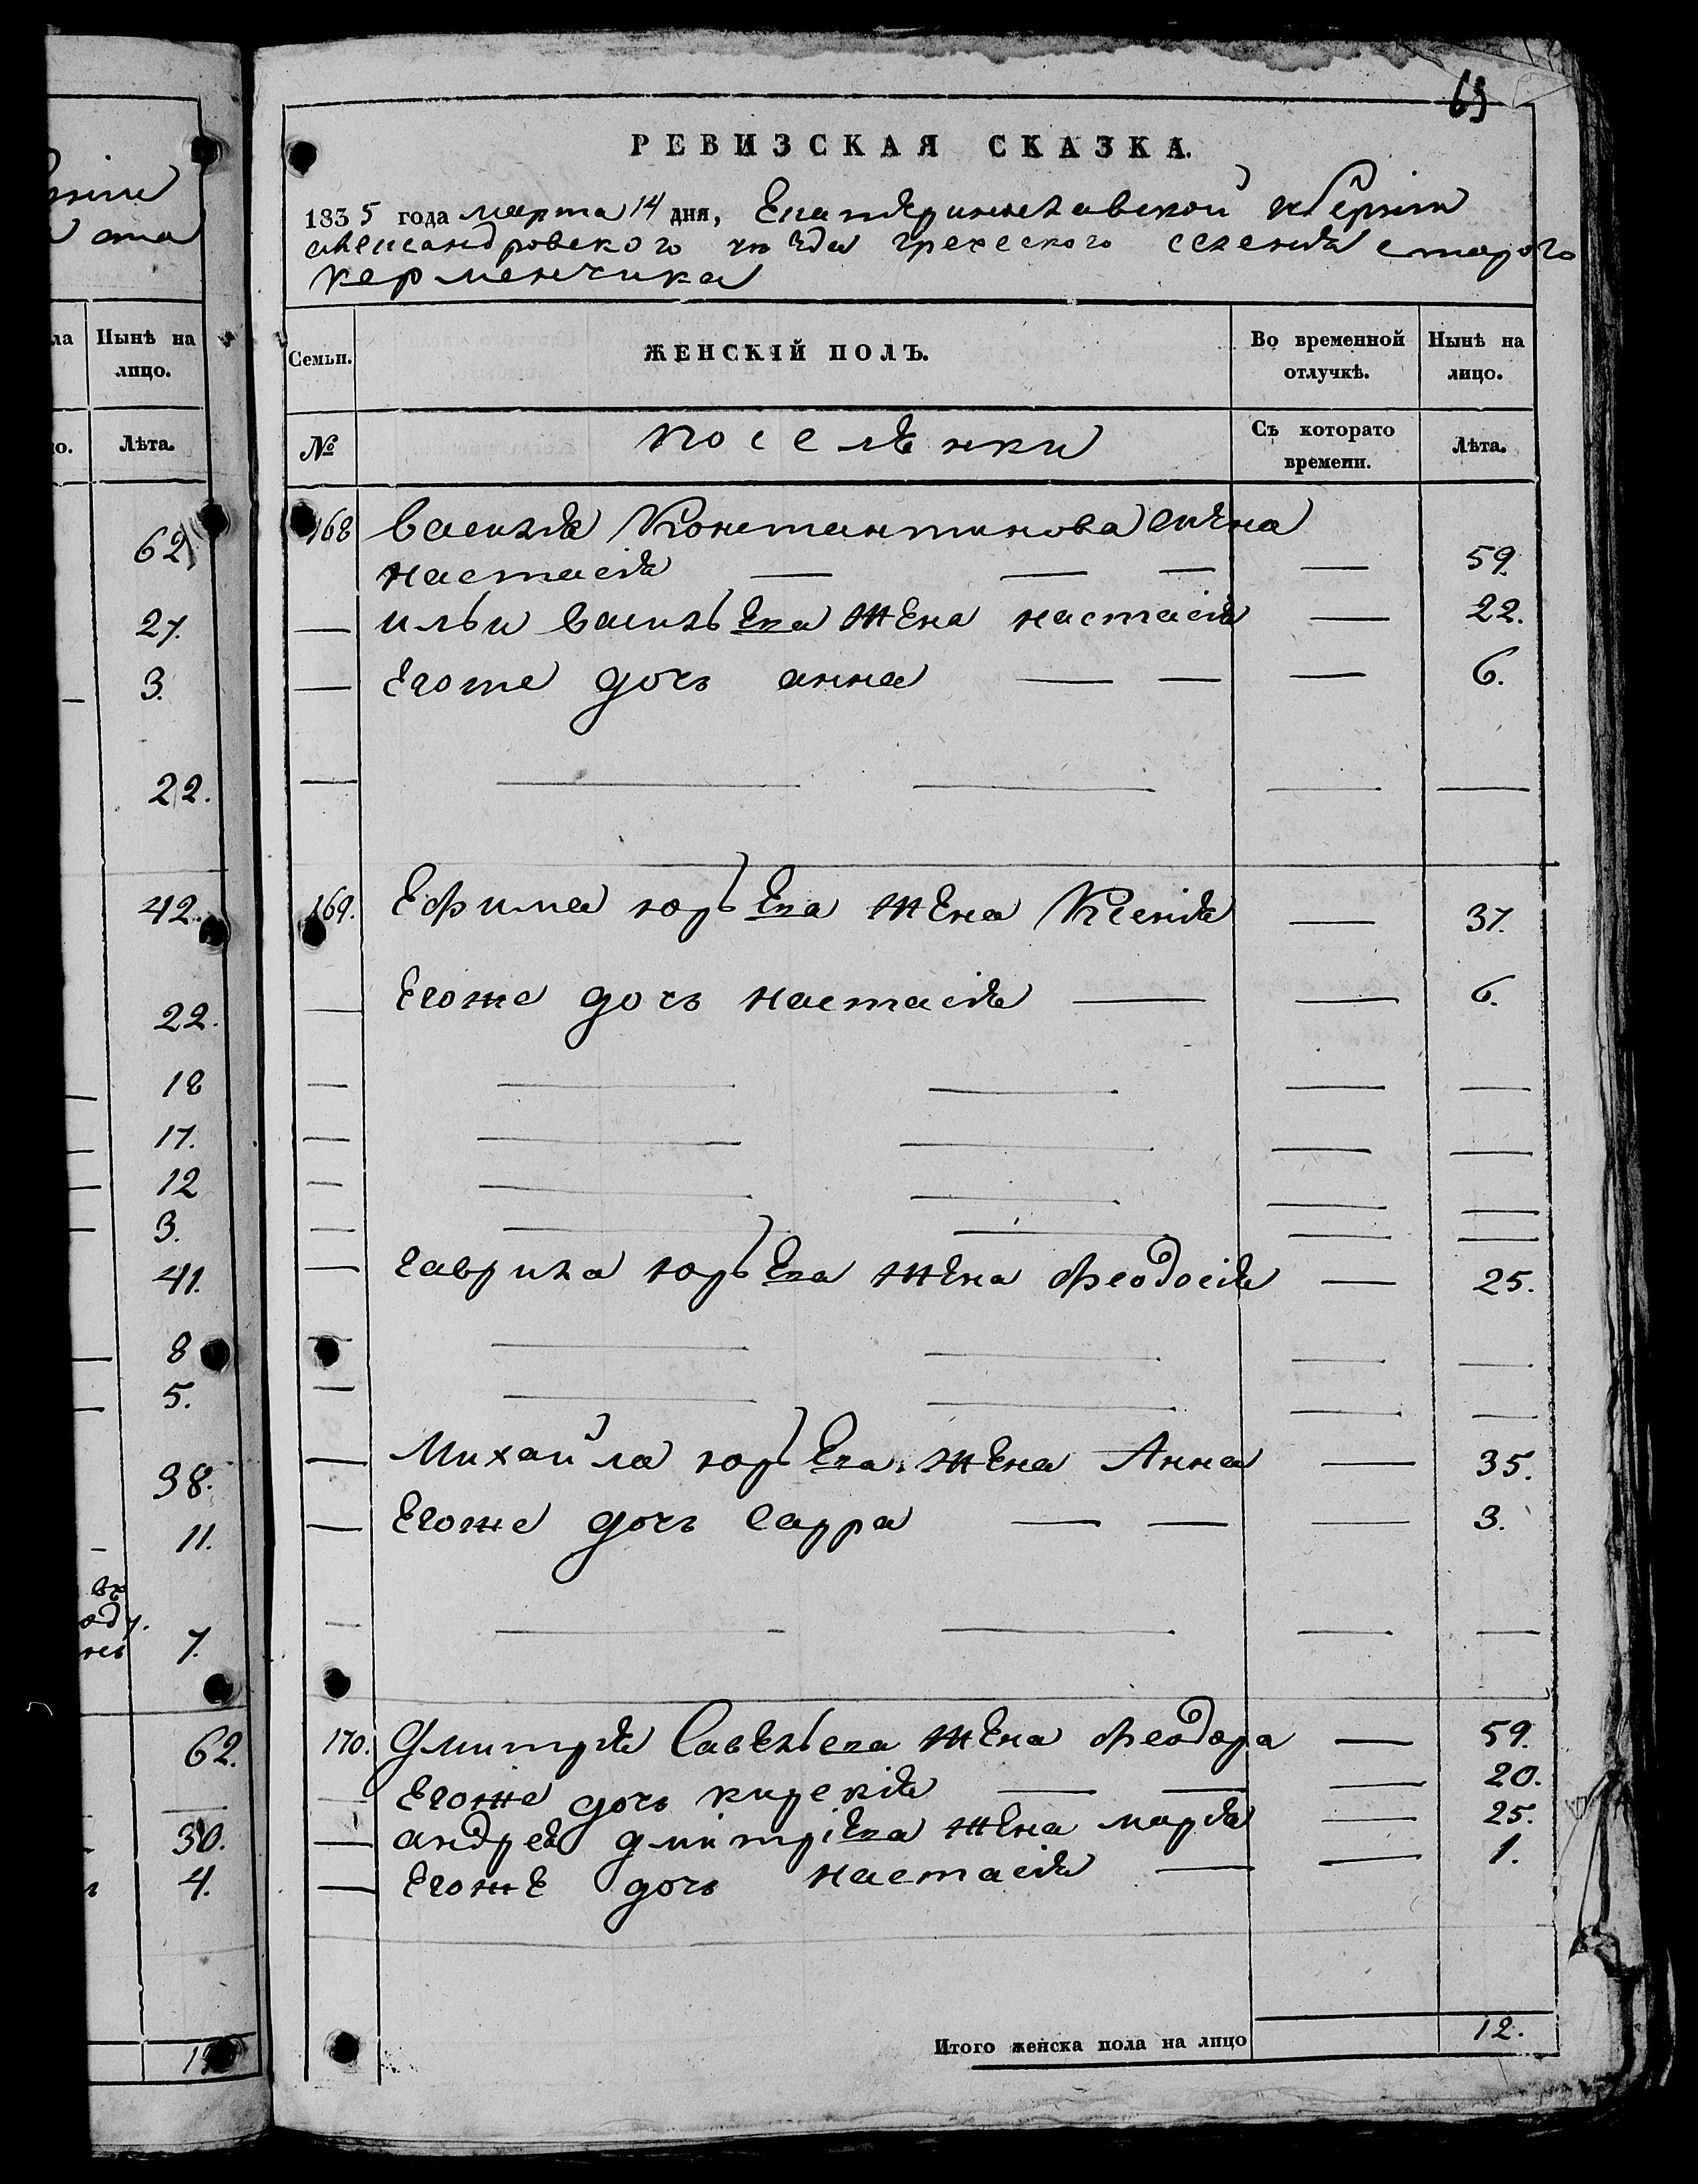 63
РЕВИЗСКАЯ СКАЗКА.
1835 года марта 14 дня, Екатеринославской губерніи
александровского уѣзда греческого селенія старого
керменчика
Семьи. ЖЕНСКІЙ ПОЛЪ. Во временной отлучкѣ. Нынѣ на лицо.
№ поселѣнки Съ которато времени. Лѣта.
168 василія Константинова жена
настасія — — — — 59.
— ильи васильева жена настасія — 22.
— Егоже дочь анна — — — 6.
— — — — —
169. Ефима юрьева жена Ксенія — 37.
— Егоже дочь настасія — — 6.
— — — — —
— — — — —
— — — — —
— — — — —
— гаврила юрьева жена феодосія — 25.
— — — — —
— — — — —
— Михайла юрьева жена Анна — 35.
— Егоже дочь сарра — — — 3.
— — — — —
170. Дмитрія Савельева жена феодора — 59.
— Егоже дочь кирекія — — — 20.
— андрея дмитріева жена марія — 25.
— Егоже дочь настасія — — 1.
Итого женска пола на лицо 12.
Нынѣ на
лицо.
Лѣта.
62
27.
3.
22.
42.
22.
18
17.
12
3.
41.
8
5.
38.
11.
7.
62.
30.
4.